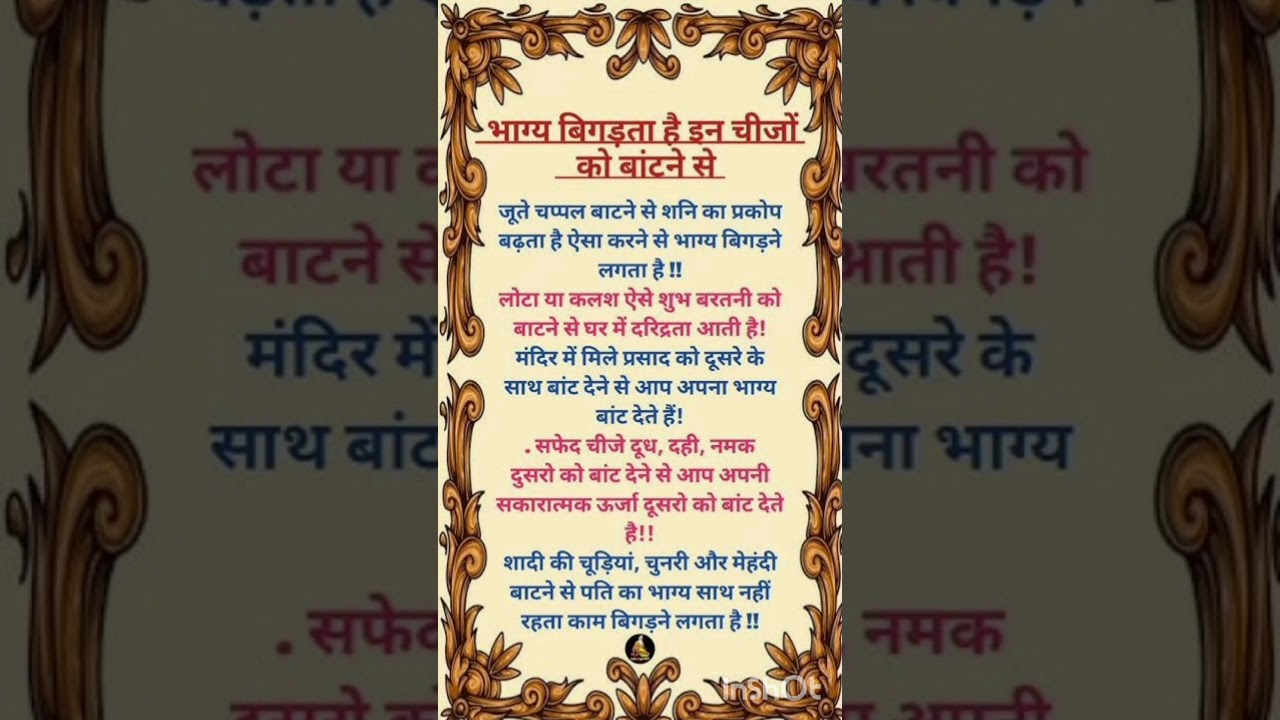 भाग्य बिगड़ता है इन चीजों
को बांटने से
जूते चप्पल बाटने से शनि का प्रकोप
बढ़ता है ऐसा करने से भाग्य बिगड़ने
लगता है !!
लोटा या कलश ऐसे शुभ बरतनी को
बाटने से घर में दरिद्रता आती है!
मंदिर में मिले प्रसाद को दूसरे के
साथ बांट देने से आप अपना भाग्य
बांट देते हैं!
. सफेद चीजे दूध, दही, नमक
दुसरो को बांट देने से आप अपनी
सकारात्मक ऊर्जा दूसरो को बांट देते
है!!
शादी की चूड़ियां, चुनरी और मेहंदी
बाटने से पति का भाग्य साथ नहीं
रहता काम बिगड़ने लगता है !!
InShOt